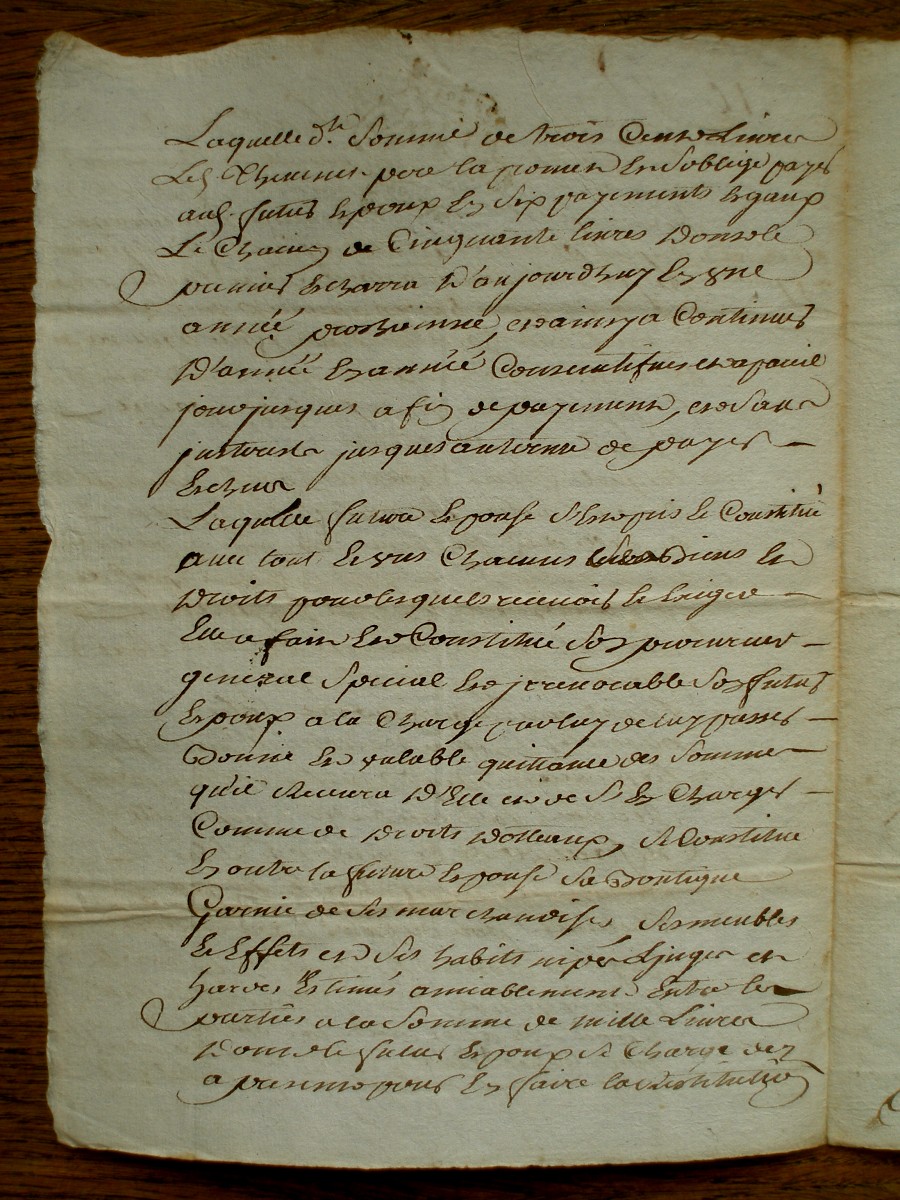 Laquelle d.te Somme de trois Cents Livres
Led. Thevenet pere la promet et Soblige payer
aud. futurs Epoux en Six payements Egaux
de Chacun de Cinquante livres dont le
premier Echerra d'aujourdhuy En Une
année prochainne, et ainsy a Continuer
D'année En année Consecutifues et a pareil
jour jusques a fin de payement, et Sans
jusques au terme de payer
Echeus
Laquelle future Epouse Sest Constitué
avec tout Et uns Chacuns Ses Biens et
Droits pour lesquels recevoir Et Exiger
Elle a fait Et Constitué Son procureur
general Special Et jrrevocable Son futur
Epoux a la Charge par luy de luy passer
Bonne Et valable quittance des Sommes
qu'il Recevra D'Elle et de S'En Charger
Comme de Droits Dottaux, Se Constitue
En outre la future Epouse Sa Boutique
Garnie de Ses marchandises, Ses meubles
Et Effets et Ses habits nipes Linges et
hardes Estimés amiablement Entre les
parties a la Somme de mille Livres
Dont le futur Epoux Se Charge des
a present pour En faire la Restitution